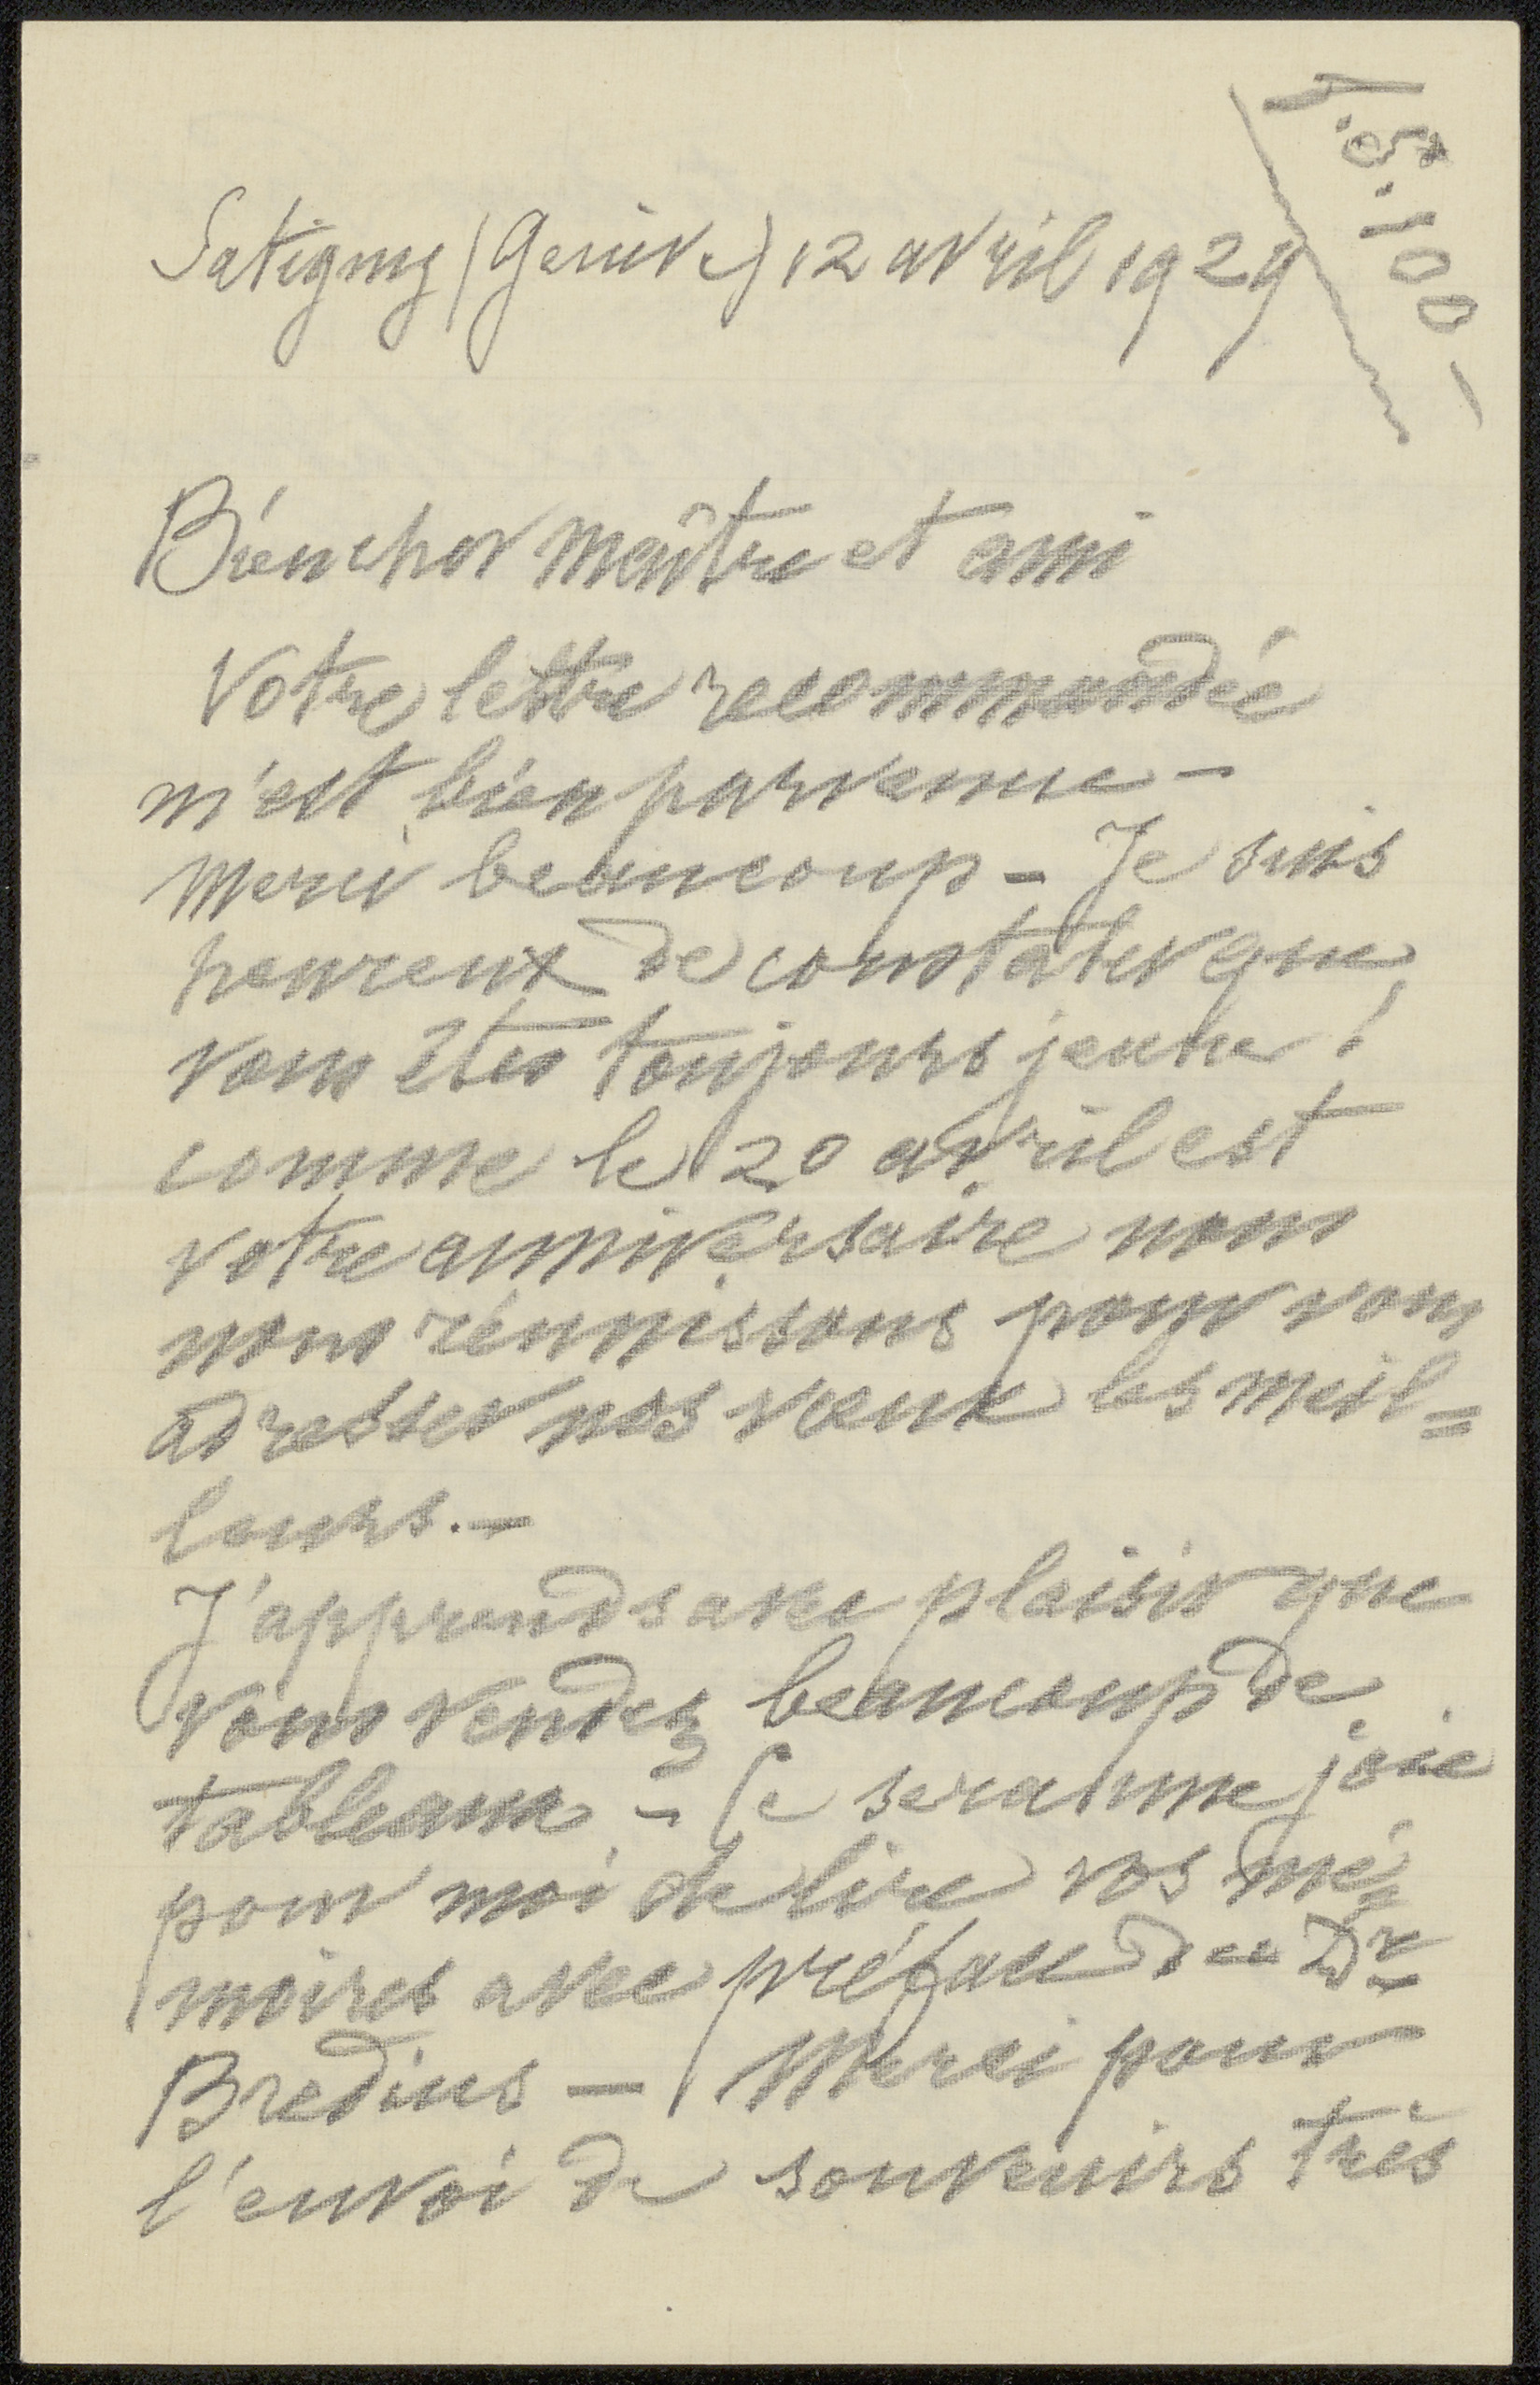 Satigny (Genève) 12 avril 1929
Bien cher Maître et ami
Votre lettre recommandée
m'est bien parvenue -
Merci beaucoup - Je suis
heureux de constater que
vous êtes toujours jeune !
comme le 20 avril est
votre anniversaire nous
nous réunissons pour vous
adresser nos vœux les meil=
leurs. -
J'apprends avec plaisir que
vous vendez beaucoup de
tableaux - Ce sera une joie
pour moi de lire vos mé=
moires avec préface du Dr
Bredius - Merci pour
l'envoi de souvenirs très